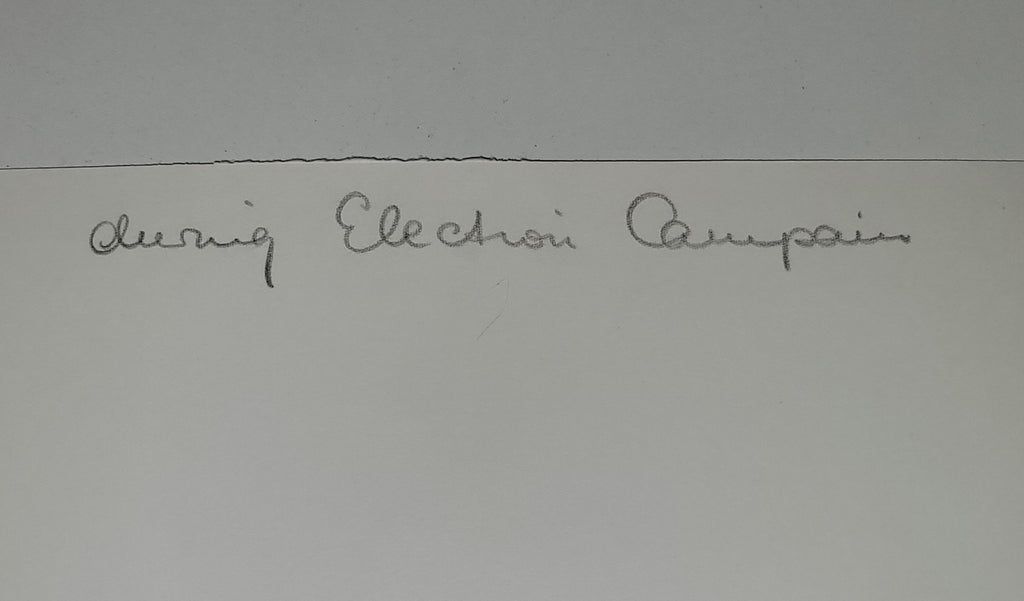 during Election Campain